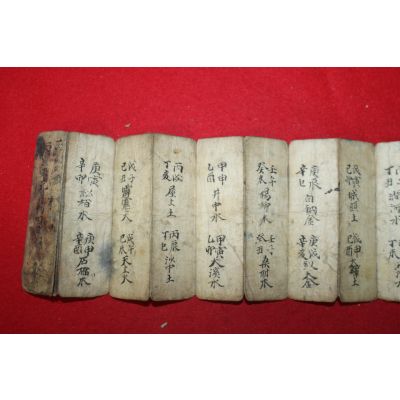 戊寅城頭土
己卯
戊申大驛土
己酉
庚辰白鑞金
辛巳
庚戌釵釧金
辛亥
壬午楊柳木
癸未
壬子桑柘木
癸丑
甲申井中水
乙酉
甲寅大溪水
乙卯
丙戌屋上土
丁亥
丙辰沙中土
丁巳
戊子霹靂火
己丑
戊午天上火
庚寅松栢木
辛卯
庚申石榴木
辛酉